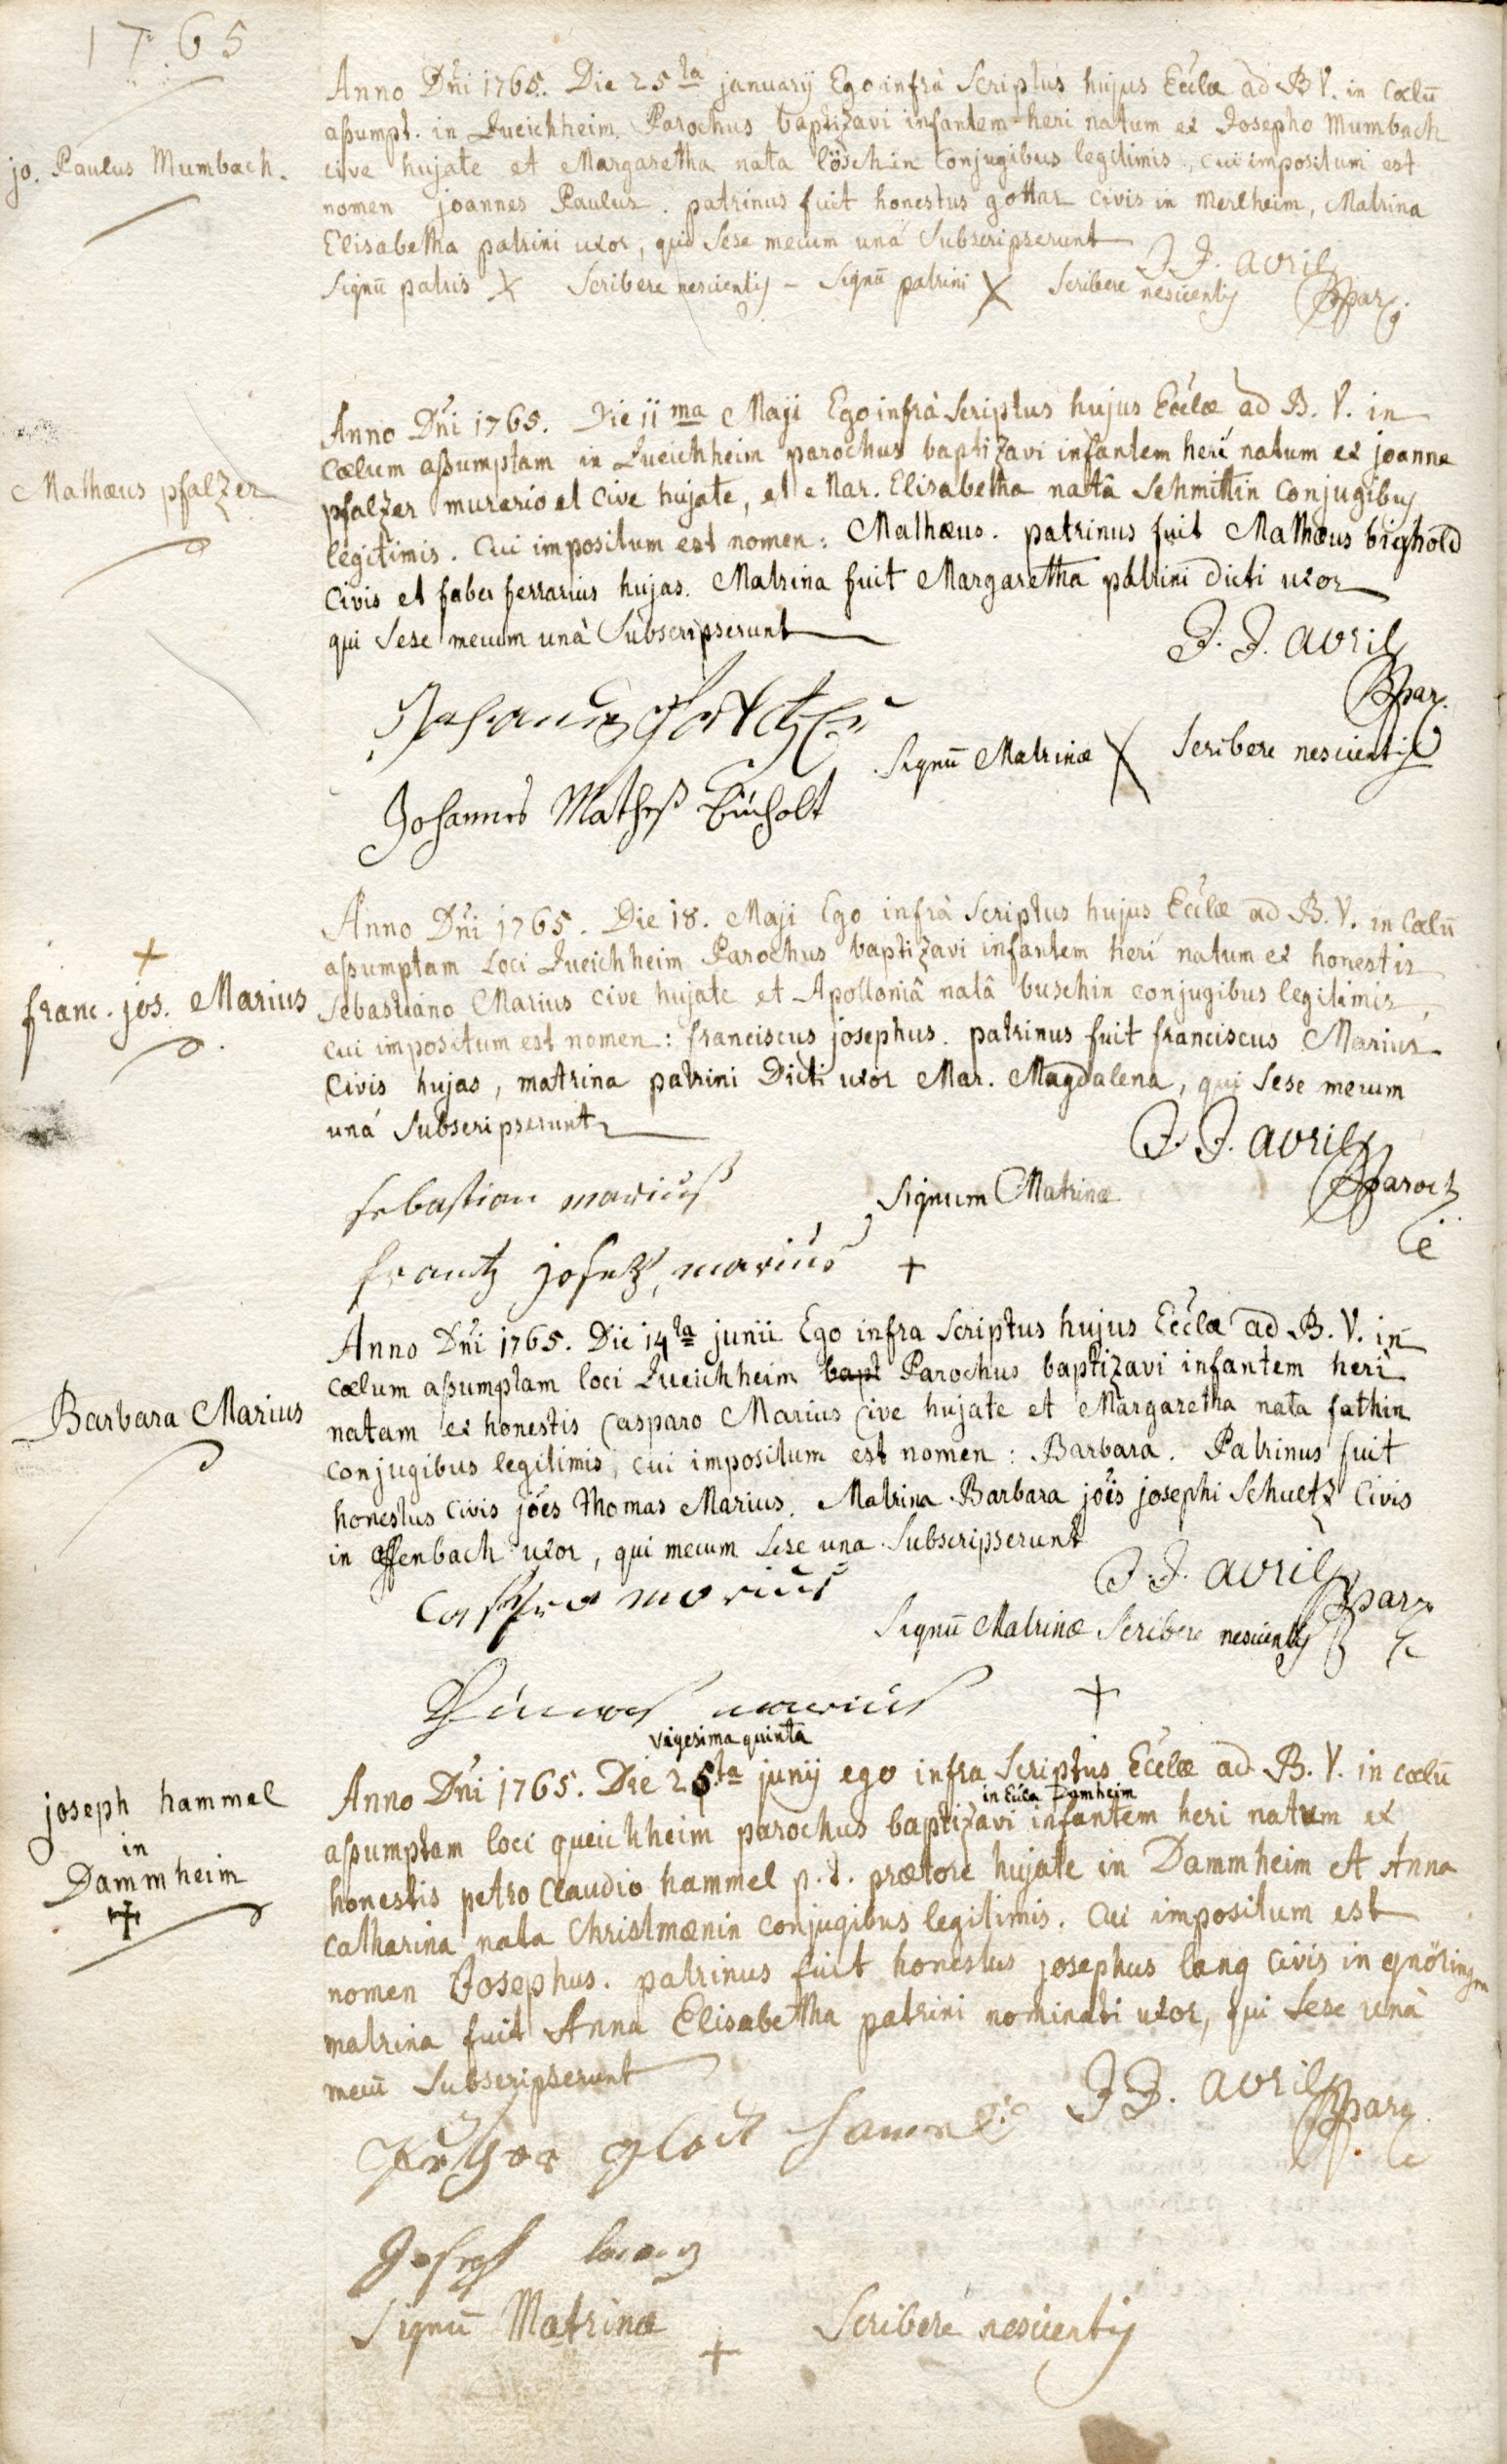 1765
Anno Dñi 1765. Die 25ta january Ego infrà Scriptus hujus Eccłæ ad B V. in Cœlū
jo. Paulus Mumbach.
aßumpt. in Queichheim. Parochus baptizavi infantem heri natum ex Josepho Mumbach
cive hujate et Margaretha nata löschin Conjugibus legitimis, cui impositum est
nomen joannes Paulus. patrinus fuit honestus gottar civis in Merlheim, Matrina
Elisabetha patrini uxor, qui Sese mecum unà Subscripserunt
J J. avril
par
Signū patris X Scribere nescientis – Signū patrini X Scribere nescientis
Mathæus pfalzer
Anno Dñi 1765. Die 11ma Maji Ego infrà Scriptus hujus Eccłæ ad B. V. in
Cœlum aßumptam in Queichheim parochus baptizavi infantem heri natum ex joanne
pfalzer murario et Cive hujate, et Mar. Elisabetha natâ Schmittin Conjugibus
legitimis. Cui impositum est nomen: Mathæus. patrinus fuit Mathæus bighold
Civis et faber ferrarius hujas. Matrina fuit Margaretha patrini dicti uxor
qui Sese mecum unà Subscripserunt
J. J. avril
par.
Signū Matrinæ X Scribere nescientis
Johannes Matheß Bücholt
+
franc. jos. Marius
Anno Dñi 1765. Die 18. Maji Ego infrà Scriptus hujus Eccłæ ad B. V. in Cœlū
aßumptam Loci Queichheim Parochus baptizavi infantem heri natum ex honestis
Sebastiano Marius cive hujate et Apolloniâ natâ buschin conjugibus legitimis,
cui impositum est nomen: franciscus josephus. patrinus fuit franciscus Marius
Civis hujas, matrina patrini Dicti uxor Mar. Magdalena, qui Sese mecum
unà Subscripserunt
J. J. avril
paroch
sebastian mariuß
Signum Matrinæ
frantz josef marius +
Barbara Marius
Anno Dñi 1765. Die 14ta junii Ego infra Scriptus hujus Eccłæ ad B. V. in
cœlum aßumptam loci Queichheim bapt Parochus baptizavi infantem heri
natam ex honestis Casparo Marius Cive hujate et Margaretha nata fathin
conjugibus legitimis, cui impositum est nomen: Barbara. Patrinus fuit
honestus Civis jões Thomas Marius. Matrina Barbara jõis josephi Schuetz Civis
in offenbach uxor, qui mecum Sese una Subscripserunt
J. J. avril
par
marius
Signū Matrinæ Scribere nescientis
marius +
joseph hammel
in
Dammheim
vigesima quinta
Anno Dñi 1765. Die 25ta junij ego infra Scriptus Eccłæ ad B. V. in cœlū
in Eccła Damheim
aßumptam loci queichheim parochus baptizavi infantem heri natum ex
honestis petro Claudio hammel p. t. prætore hujate in Dammheim et Anna
catharina nata Christmænin conjugibus legitimis. Cui impositum est
nomen Josephus. patrinus fuit honestus josephus lang civis in gnöringen
matrina fuit Anna Elisabetha patrini nominati uxor, qui Sese unà
mecū Subscripserunt
J J. avril
par
Joseph lang
Signū Matrinæ + Scribere nescientis